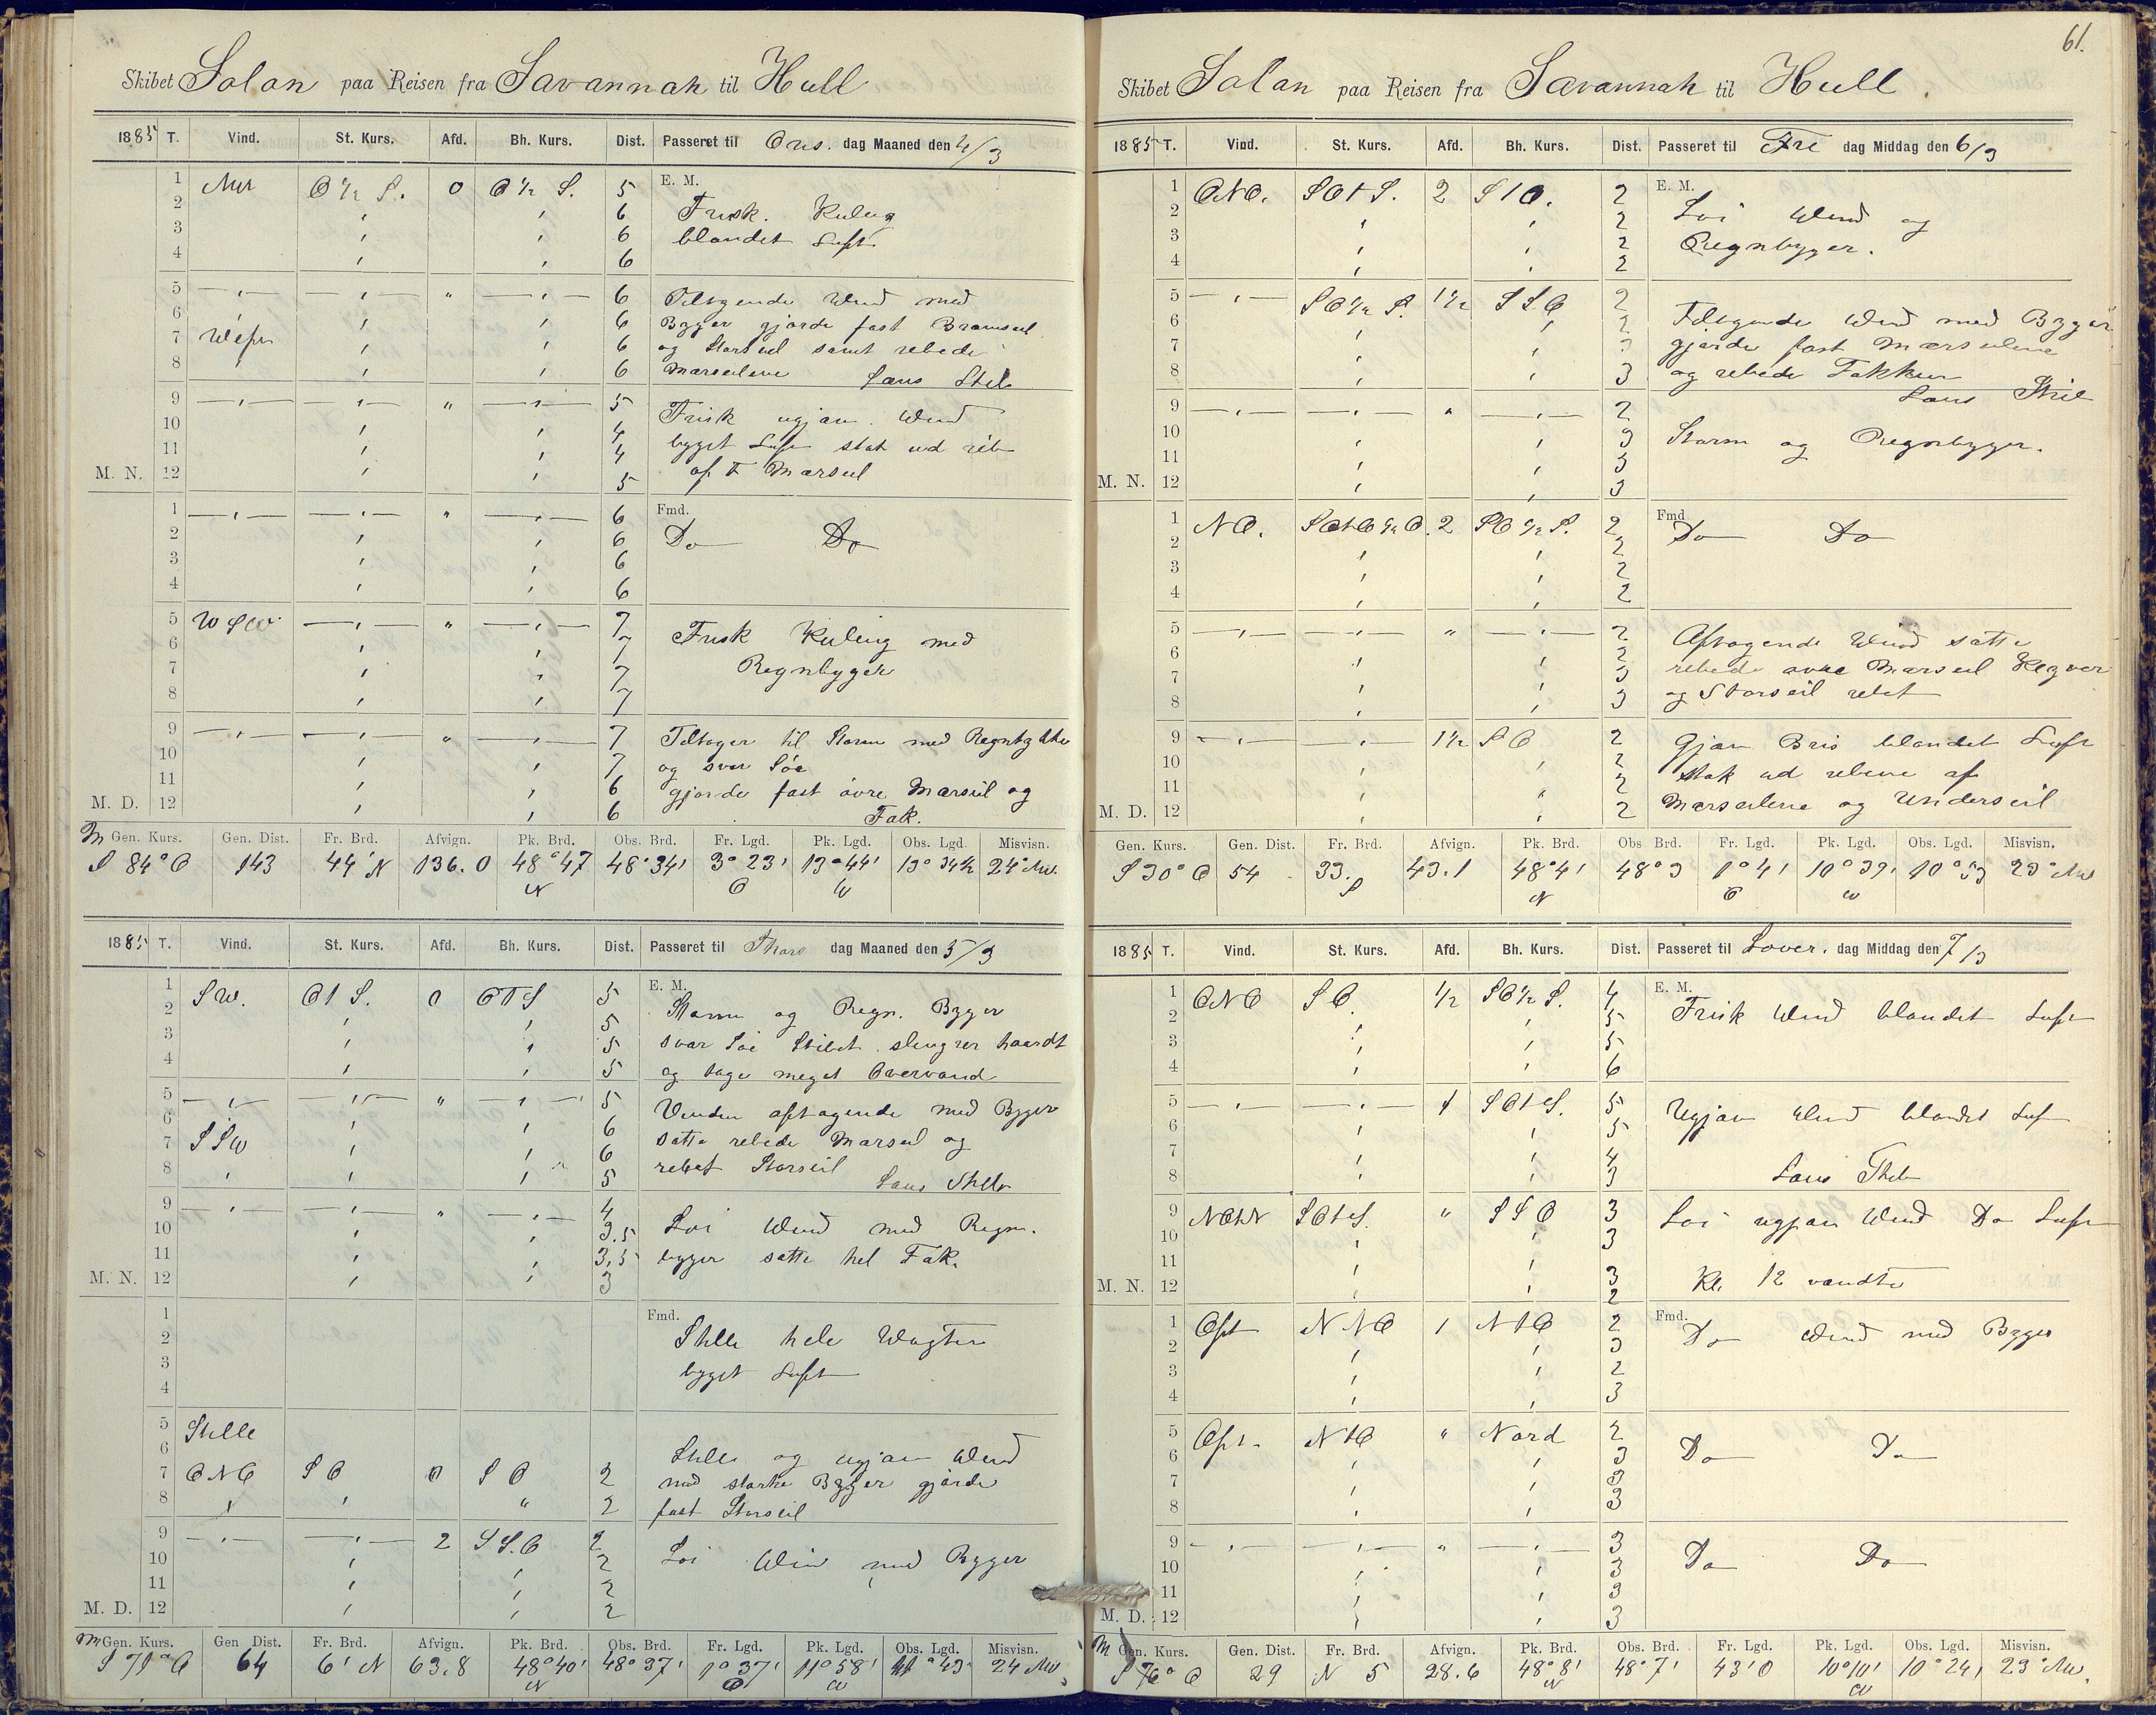 Skibet Solon paa Reisen fra Savannah til Hull
1885 T. Vind. St. Kurs. Afd. Bh. Kurs. Dist. Passeret til Ons. dag Maaned den 4/3
1 NW O ½ S. 0 O ½ S. 5 E. M.
2 6 Frisk. Kuling
3 6 blandet Luft
4 6
5 6 Tiltagende Wind med
6 6 Byger gjorde fast Bramseil
7 6 og Storseil samt rebede
8 6 Mærseilene Lans Stel
9 5 Frisk ugjæv. Wind
10 4 byget Luft stak ud reb
11 4 af F Mærseil
M. N. 12 5
1 6 Fmd.
2 6 Do Do
3 6
4 6
5 WSW 7 Frisk Kuling med
6 7 Regnbyger
7 7
8 7
9 7 Tiltager til Storm med Regntykke
10 7 og svær Søe
11 6 gjorde fast øvre Mærseil og
M. D. 12 6 Fok.
M Gen. Kurs. Gen. Dist. Fr. Brd. Afvign. Pk. Brd. Obs. Brd. Fr. Lgd. Pk. Lgd. Obs. Lgd. Misvisn.
S 84° O 143 44' N 136.0 48°47 N 48°34' 3°23' O 13°44' W 13°34½ 24° NW.
1885 T. Vind. St. Kurs. Afd. Bh. Kurs. Dist. Passeret til Thors dag Maaned den 5/3
1 SW. OtS. 0 OTS 5 E. M.
2 5 Storm og Regn. Byger
3 5 svær Søe Skibet slengrer haardt
4 5 og tage meget Overvand
5 5 Vinden aftagende med Byger
6 6 satte rebede Mærseil og
7 SSW 6 rebet Storseil
8 5 Lans Stel
9 4
10 3.5 Løi Wind med Regn.
11 3,5 byger satte hel Fok.
M. N. 12 3
1 Fmd.
2 Stille hele Wagten
3 byget Luft
4
5 Stille
6 Stille og ugjæv Wind
7 ONO SO 0 SO 2 med stærke Byger gjorde
8 2 fast Storseil
9 2 SS.O 2
10 2 Løi Win med Byger
11 2
M. D. 12 2
M Gen. Kurs. Gen Dist. Fr. Brd. Afvign. Pk. Brd. Obs. Brd. Fr. Lgd. Pk. Lgd. Obs. Lgd. Misvisn.
S 71° O 64 6' N 63.8 48°40' N 48°37' 1°37' O 11°58' W 43 24 NW
61.
Skibet Solon paa Reisen fra Savannah til Hull.
1885 T. Vind. St. Kurs. Afd. Bh. Kurs. Dist. Passeret til Fre dag Middag den 6/3
1 ONO. SOtS. 2 StO. 2 E. M.
2 2 Løi Wind og
3 2 Regnbyger.
4 2
5 SO ½ S. 1½ SSO 2
6 2 Tiltagende Wind med Byger
7 gjorde fast Mærseilene
8 3 og rebede Fokken
9 2 Lans Stel
10 3 Storm og Regnbyger.
11 3
M. N. 12 3
1 NO. SOtO ½ O. 2 SO ½ S. 2 Fmd
2 2 Do Do
3 2
4 2
5 2 Aftagende Wind satte
6 2 rebede øvre Mærseil Klyver
7 3 og Storseil rebet
8 3
9 1½ SO 2 Gjæv Bris blandet Luft
10 2 stak ud rebene af
11 2 Mærseilene og Underseil
M. D. 12 2
Gen. Kurs. Gen. Dist. Fr. Brd. Afvign. Pk. Brd. Obs Brd. Fr. Lgd. Pk. Lgd. Obs. Lgd. Misvisn.
S 30° O 54 33. S 43.1 48°4' N 48°3 1°4' O 10°39' W 10°53 23° NW
1885 T. Vind. St. Kurs. Afd. Bh. Kurs. Dist. Passeret til Løver. dag Middag den 7/3
1 ONO SO. ½ SO ½ S. 4 E. M.
2 5 Frisk Wind blandet Luft
3 5
4 6
5 1 SOtS. 5 Ugjæv Wind blandet Luf
6 5
7 4
8 3 Lans Stel
9 NOtN SOtS. SSO 3 Løi ugjæv Wind Do Luft
10 3
11 3 Kl. 12 vendte
M. N. 12 2
1 Ost NNO 1 NtO 2 Fmd.
2 3 Do Wind med Byger
3 2
4 3
5 Ost. NtO Nord 2
6 3 Do Do
7 3
8 3
9 3
10 3 Do Do
11 3
M. D. 12 3
M Gen. Kurs. Gen. Dist. Fr. Brd. Afvign. Pk. Brd. Obs. Brd. Fr. Lgd. Pk. Lgd. Obs. Lgd. Misvisn.
S 76° O 29 N 5 28.6 48°8' N 48°7' 43'O 10°10' W 10°24' 23° NW.